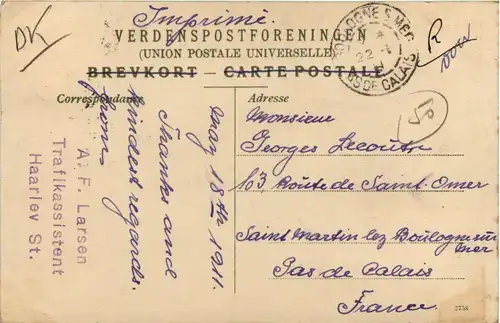 DK
Imprimé.
VERDENSPOSTFORENINGEN
(UNION POSTALE UNIVERSELLE)
BREVKORT — CARTE POSTALE
BOULOGNE S. MER
22
PAS DE CALAIS
R
Correspondance
Adresse
May 18th 1911.
Thanks and
kindest regards.
from
A. F. Larsen
Trafikassistent
Haarlev St.
Monsieur
Georges Lecoutre
103, Route de Saint-Omer
Saint Martin lez Boulogne sur
mer
Pas de Calais
France.